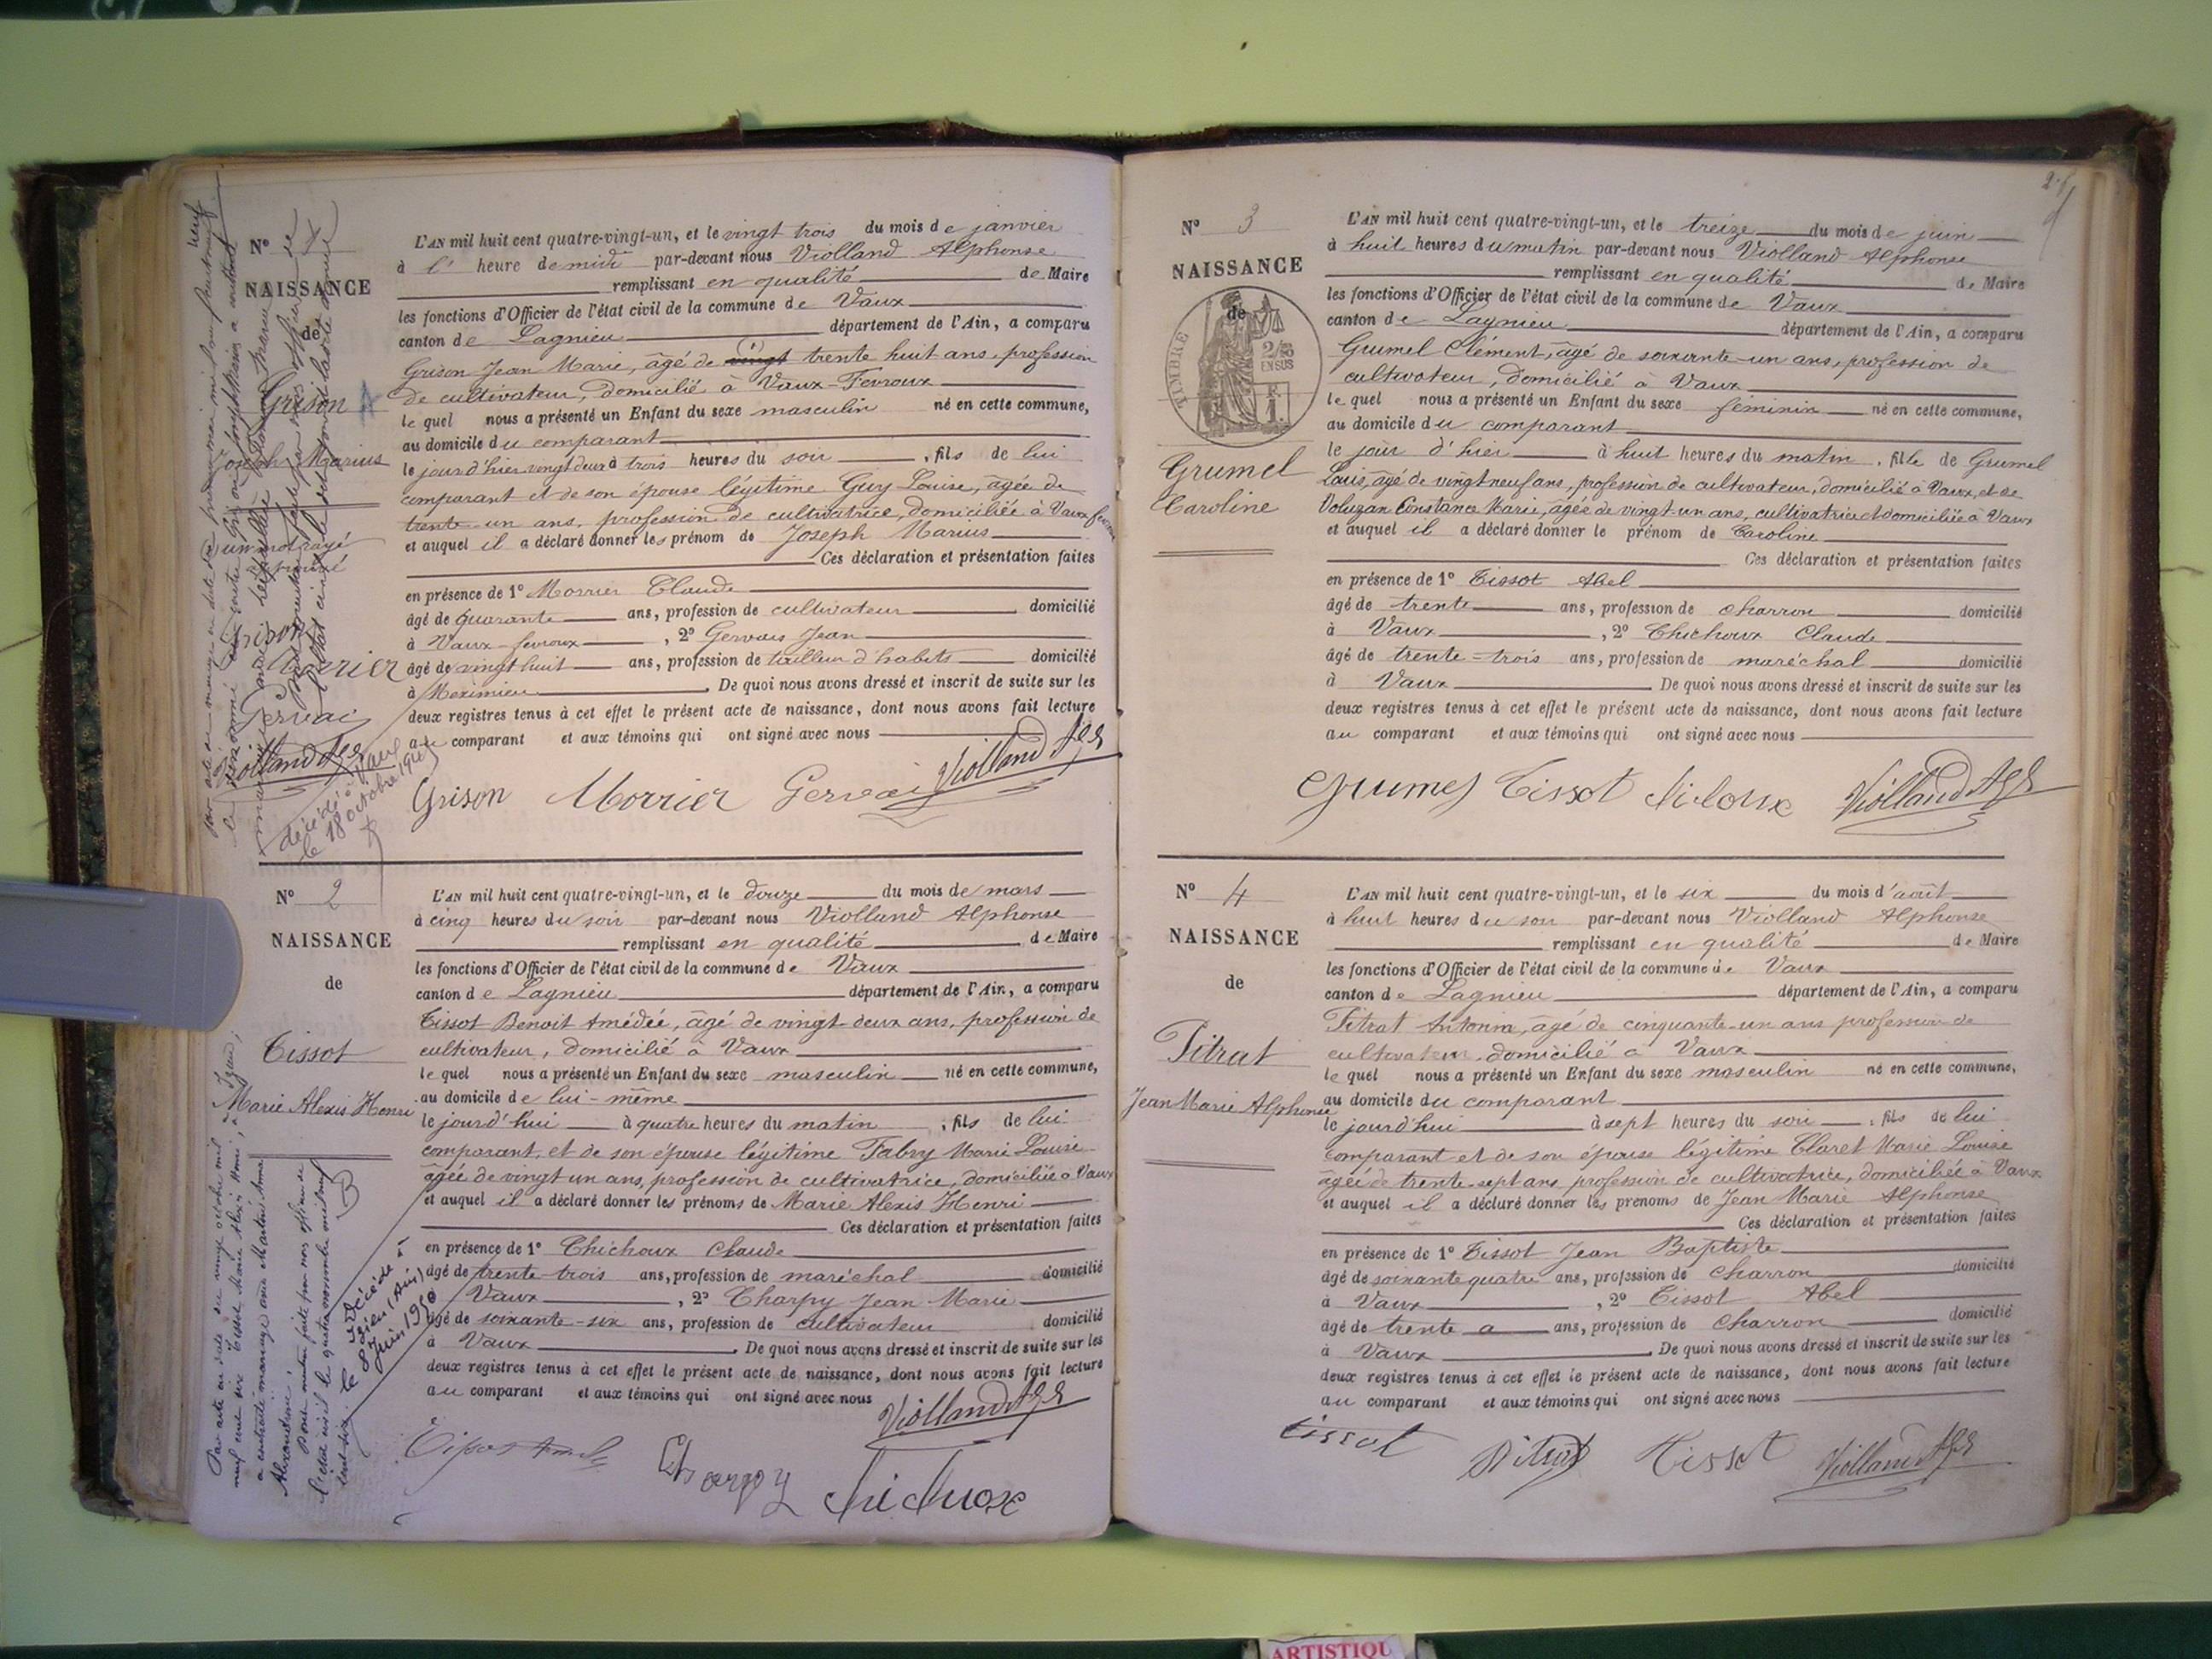 Nº 1
NAISSANCE
de
Grison
Joseph Marius
un mot rayé
Grison
Morrier
Gervai
Violland Alph
décédé à Vaux
le 18 octobre 19
L'AN mil huit cent quatre-vingt-un, et le vingt trois du mois de janvier
à l' heure de midi par-devant nous Violland Alphonse
remplissant en qualité de Maire
les fonctions d'Officier de l'état civil de la commune de Vaux
canton de Lagnieu département de l'Ain, a comparu
Grison Jean Marie, âgé de vingt trente huit ans, profession
de cultivateur, domicilié à Vaux-Fevroux
le quel nous a présenté un Enfant du sexe masculin né en cette commune,
au domicile du comparant
le jour d'hier vingt deux à trois heures du soir, fils de lui
comparant et de son épouse légitime Guy Louise, âgée de
trente-un ans, profession de cultivatrice, domiciliée à Vaux
et auquel il a déclaré donner les prénom de Joseph Marius
Ces déclaration et présentation faites
en présence de 1º Morrier Claude
âgé de quarante ans, profession de cultivateur domicilié
à Vaux-fevroux, 2º Gervais Jean
âgé de vingt huit ans, profession de tailleur d'habits domicilié
à Meximieu. De quoi nous avons dressé et inscrit de suite sur les
deux registres tenus à cet effet le présent acte de naissance, dont nous avons fait lecture
au comparant et aux témoins qui ont signé avec nous
Violland Alph
Grison Morrier Gervai
Nº 2
NAISSANCE
de
Tissot
Marie Alexis Henri
L'AN mil huit cent quatre-vingt-un, et le douze du mois de mars
à cinq heures du soir par-devant nous Violland Alphonse
remplissant en qualité de Maire
les fonctions d'Officier de l'état civil de la commune de Vaux
canton de Lagnieu département de l'Ain, a comparu
Tissot Benoit Amédée, âgé de vingt-deux ans, profession de
cultivateur, domicilié à Vaux
le quel nous a présenté un Enfant du sexe masculin né en cette commune,
au domicile de lui-même
le jourd'hui à quatre heures du matin, fils de lui
comparant, et de son épouse légitime Fabry Marie Louise
âgée de vingt un ans, profession de cultivatrice, domiciliée à Vaux
et auquel il a déclaré donner les prénoms de Marie Alexis Henri
Ces déclaration et présentation faites
en présence de 1º Chichoux Claude
âgé de trente-trois ans, profession de maréchal domicilié
à Vaux, 2º Charpy Jean Marie
âgé de soixante-six ans, profession de cultivateur domicilié
à Vaux. De quoi nous avons dressé et inscrit de suite sur les
deux registres tenus à cet effet le présent acte de naissance, dont nous avons fait lecture
au comparant et aux témoins qui ont signé avec nous
Violland Alph
Charpy
Nº 3
NAISSANCE
de
TIMBRE
2/20
EN SUS
Grumel
Caroline
L'AN mil huit cent quatre-vingt-un, et le treize du mois de juin
à huit heures du matin par-devant nous Violland Alphonse
remplissant en qualité de Maire
les fonctions d'Officier de l'état civil de la commune de Vaux
canton de Lagnieu département de l'Ain, a comparu
Grumel Clément, âgé de soixante-un ans, profession de
cultivateur, domicilié à Vaux
le quel nous a présenté un Enfant du sexe féminin né en cette commune,
au domicile du comparant
le jour d'hier à huit heures du matin, fille de Grumel
Louis, âgé de vingt neuf ans, profession de cultivateur, domicilié à Vaux, et de
Constance Marie, âgée de vingt-un ans, cultivatrice et domiciliée à Vaux
et auquel il a déclaré donner le prénom de Caroline
Ces déclaration et présentation faites
en présence de 1º Tissot Abel
âgé de trente ans, profession de charron domicilié
à Vaux, 2º Chichoux Claude
âgé de trente-trois ans, profession de maréchal domicilié
à Vaux. De quoi nous avons dressé et inscrit de suite sur les
deux registres tenus à cet effet le présent acte de naissance, dont nous avons fait lecture
au comparant et aux témoins qui ont signé avec nous
Grumel Tissot Violland Alph
Nº 4
NAISSANCE
de
Pitrat
Jean Marie Alphonse
L'AN mil huit cent quatre-vingt-un, et le six du mois d'août
à huit heures du soir par-devant nous Violland Alphonse
remplissant en qualité de Maire
les fonctions d'Officier de l'état civil de la commune de Vaux
canton de Lagnieu département de l'Ain, a comparu
Pitrat Antonin, âgé de cinquante-un ans profession de
cultivateur, domicilié à Vaux
le quel nous a présenté un Enfant du sexe masculin né en cette commune,
au domicile du comparant
le jourd'hui à sept heures du soir, fils de lui
comparant et de son épouse légitime Claret Marie Louise
âgée de trente-sept ans, profession de cultivatrice, domiciliée à Vaux
et auquel il a déclaré donner les prénoms de Jean Marie Alphonse
Ces déclaration et présentation faites
en présence de 1º Tissot Jean Baptiste
âgé de soixante quatre ans, profession de charron domicilié
à Vaux, 2º Tissot Abel
âgé de trente ans, profession de charron domicilié
à Vaux. De quoi nous avons dressé et inscrit de suite sur les
deux registres tenus à cet effet le présent acte de naissance, dont nous avons fait lecture
au comparant et aux témoins qui ont signé avec nous
Tissot Pitrat Tissot Violland Alph
ARTISTIQU